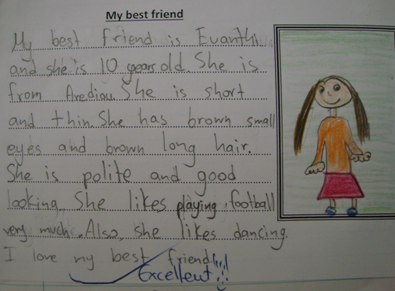 My best friend
My best friend is Evanthi
and she is 10 years old. She is
from Arediou. She is short
and thin. She has brown small
eyes and brown long hair.
She is polite and good
looking. She likes playing football
very much. Also, she likes dancing.
I love my best friend!!!
Excellent